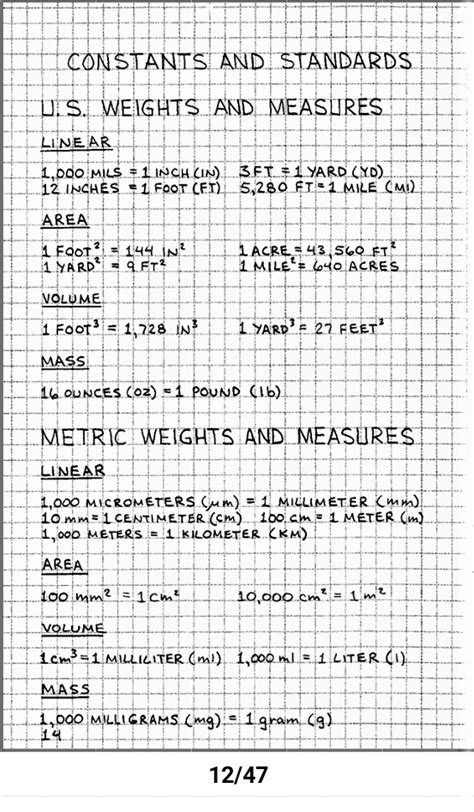 CONSTANTS AND STANDARDS
U.S. WEIGHTS AND MEASURES
LINEAR
1,000 MILS = 1 INCH (IN) 3 FT = 1 YARD (YD)
12 INCHES = 1 FOOT (FT) 5,280 FT = 1 MILE (MI)
AREA
1 FOOT² = 144 IN² 1 ACRE = 43,560 FT²
1 YARD² = 9 FT² 1 MILE² = 640 ACRES
VOLUME
1 FOOT³ = 1,728 IN³ 1 YARD³ = 27 FEET³
MASS
16 OUNCES (OZ) = 1 POUND (lb)
METRIC WEIGHTS AND MEASURES
LINEAR
1,000 MICROMETERS (μm) = 1 MILLIMETER (mm)
10 mm = 1 CENTIMETER (cm) 100 cm = 1 METER (m)
1,000 METERS = 1 KILOMETER (KM)
AREA
100 mm² = 1 cm² 10,000 cm² = 1 m²
VOLUME
1 cm³ = 1 MILLILITER (ml) 1,000 ml = 1 LITER (l)
MASS
1,000 MILLIGRAMS (mg) = 1 gram (g)
14
12/47